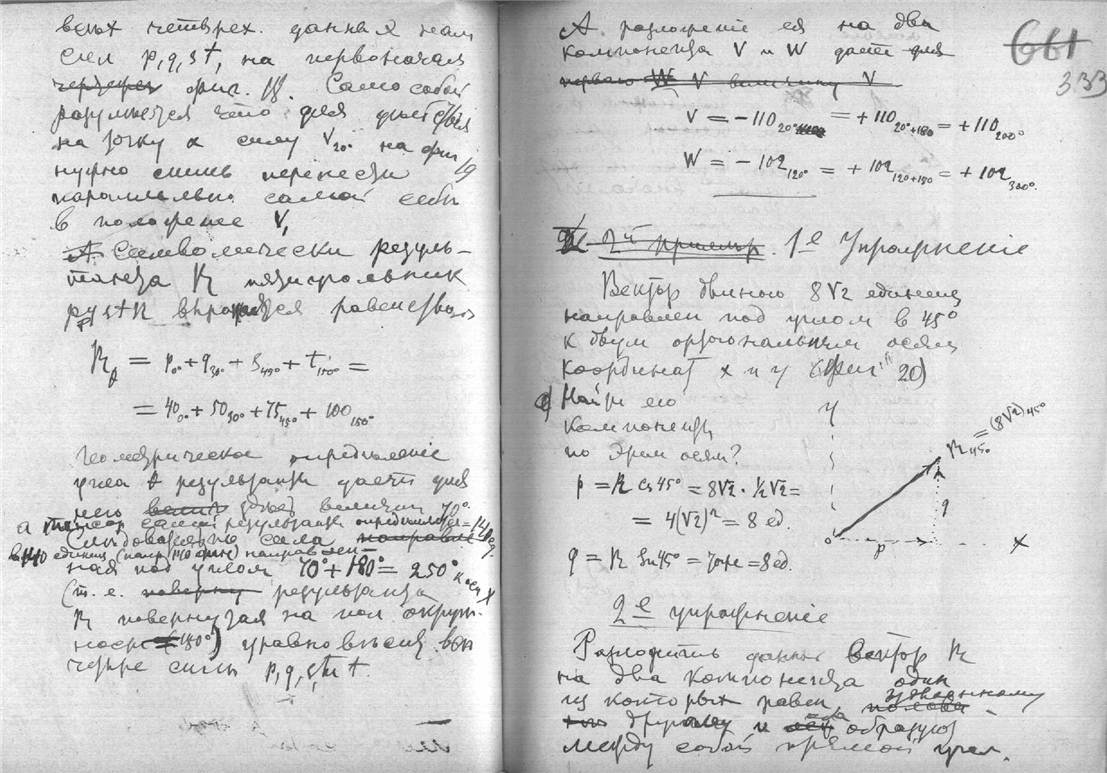 всех четырех данных нам
сил p, q, s, t, на первоначал
чертеже фиг. 18. Само собой
разумеется что для действия
на точку α силу V₂₀° на фиг
нужно лишь перенести 19
параллельно самой себе
в положение V,
А. Символически резуль-
танта R
pqstR выражается равенством
R = p₀° + q₃₀° + s₄₅° + t₁₅₀° =
= 40₀° + 50₃₀° + 75₄₅° + 100₁₅₀°
Геометрическое определение
угла результанты дает для
него величину 70°
а самой результанты = 140 ед.
Следовательно сила
единиц направлен-
ная под углом 70° + 180° = 250° к оси X
(т. е. результанта
R повернутая на пол окруж-
ности 180°) уравновесит все
четыре силы p, q, s, и t.
А. разложение ея на два
компонента V и W дает для
V
V = −110₂₀° = +110₂₀°₊₁₈₀ = +110₂₀₀°
W = −102₁₂₀° = +102₁₂₀₊₁₈₀ = +102₃₀₀°.
661
333
2й пример. 1е Упражнение
Вектор длиною 8√2 единиц
направлен под углом в 45°
к двум ортогональным осям
координат x и y (Фиг. 20)
Найти его
компоненты
по этим осям?
p = R Cs 45° = 8√2 · ½√2 =
= 4(√2)² = 8 ед.
q = R Sn 45° = тоже = 8 ед.
y
R₄₅° = (8√2)₄₅°
q
o p x
2е упражнение
Разложить данный вектор R
на два компонента один
из которых равен удвоенному
другому и образуют
между собой прямой угол.